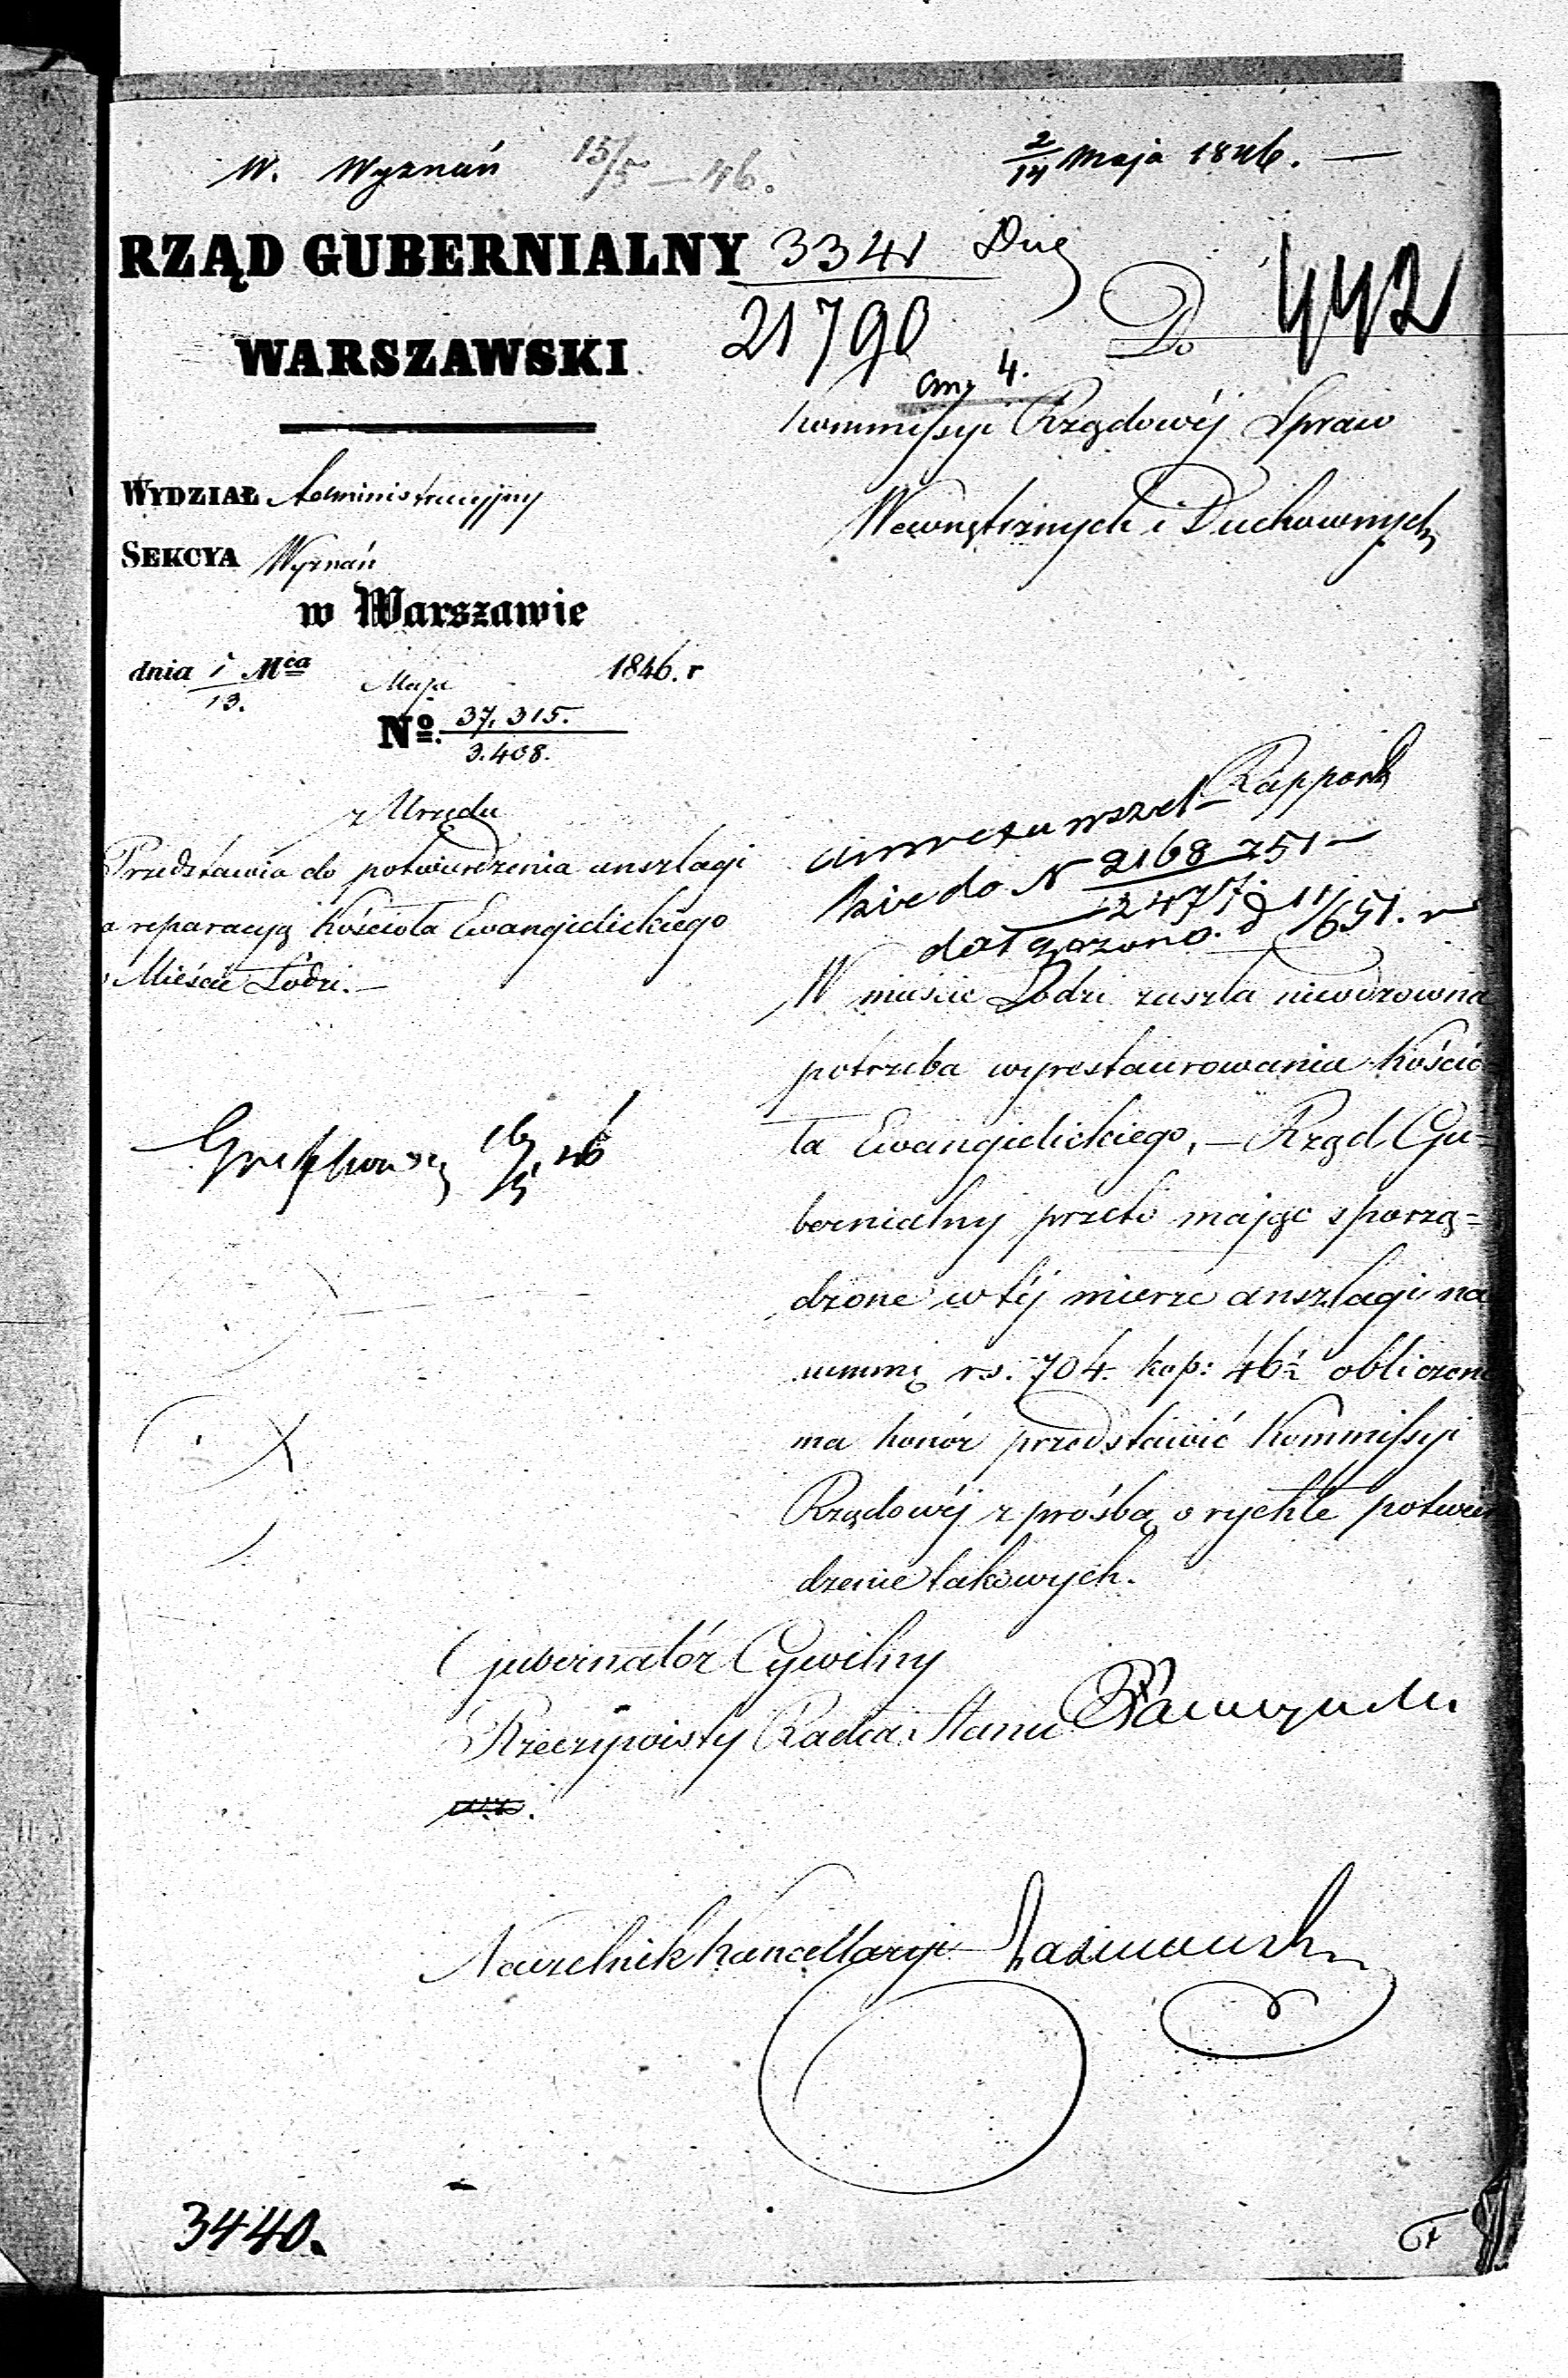 W. Wyznań 15/5 – 46.
2/14 Maja 1846. —
RZĄD GUBERNIALNY
WARSZAWSKI
3341
21790
anx 4.
442
Do
Kommissyi Rządowéj Spraw
Wewnętrznych i Duchownych
WYDZIAŁ Administracyjny
SEKCYA Wyznań
w Warszawie
dnia 1/13. Mca Maja 1846. r
No. 37,315./3.408.
z Urzędu
Przedstawia do potwierdzenia anszlagi
a reparacyą Kościoła Ewangielickiego
Mieście Łodzi.—
Rapport
do N 2168 751
2477
dołączono. d 11/651. r
W mieście Łodzi zaszła nieodzowna
potrzeba wyrestaurowania Kościo
ła Ewangielickiego, — Rząd Gu=
bernialny przeto mając sporzą=
dzone w téj mierze anszlagi na
summę rs. 704. kop: 46½ obliczone
ma honór przedstawić Kommissyi
Rządowéj z prośbą o rychłe potwier
dzenie takowych.
16/5 46
Gubernatór Cywilny
Rzeczywisty Radca Stanu
Naczelnik Kancellaryi
3440.